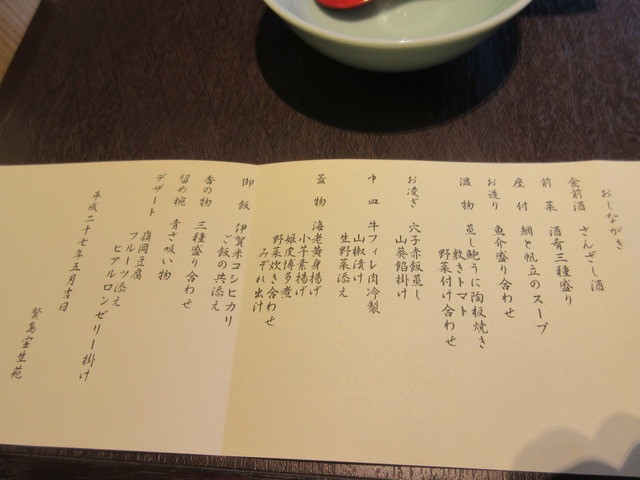 おしながき
食前酒 さんざし酒
前菜 酒肴三種盛り
座付 鯛と帆立のスープ
お造り 魚介盛り合わせ
温物 蒸し鮑うに陶板焼き
敷きトマト
野菜付け合わせ
お凌ぎ 穴子赤飯蒸し
山葵餡掛け
中皿 牛フィレ肉冷製
山椒漬け
生野菜添え
蓋物 海老黄身揚げ
小芋素揚げ
姫皮博多煮
野菜炊き合わせ
みぞれ出汁
御飯 伊賀米コシヒカリ
ご飯の共添え
香の物 三種盛り合わせ
留め椀 青さ吸い物
デザート 嶺岡豆腐
フルーツ添え
ヒアルロンゼリー掛け
平成二十七年五月吉日
賢島宝生苑